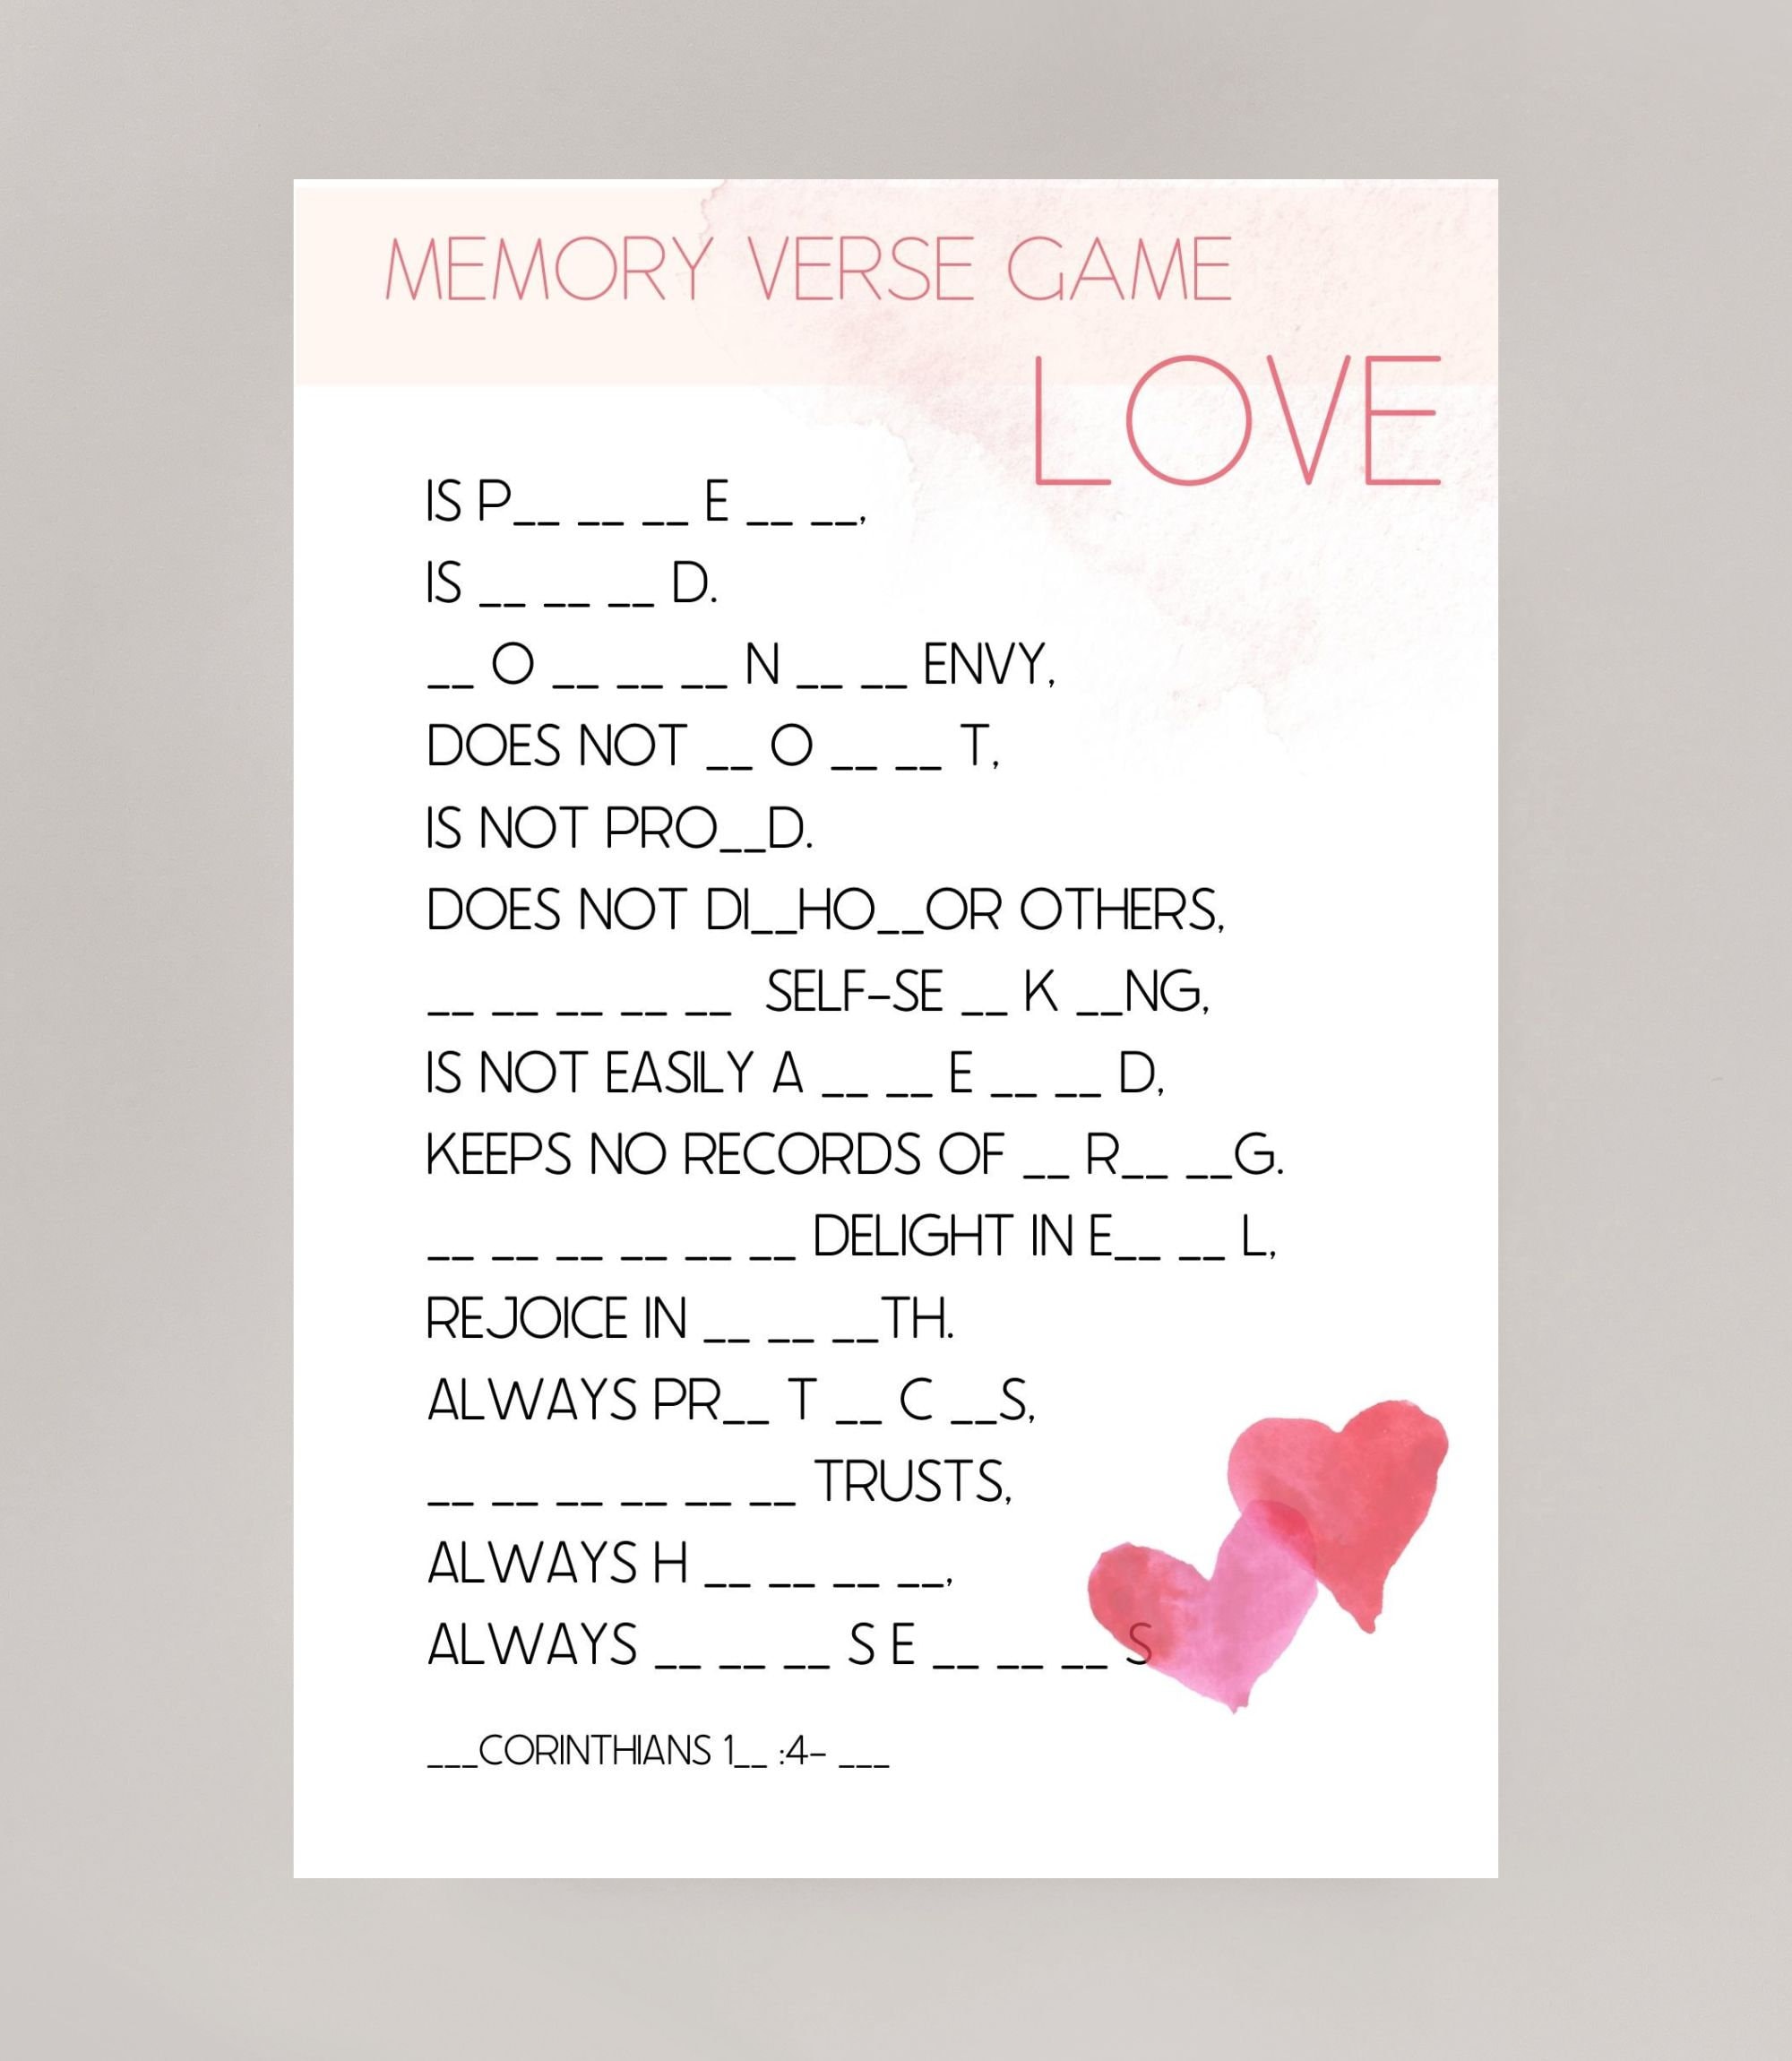 MEMORY VERSE GAME
LOVE
IS P__ __ __ E __ __,
IS __ __ __ D.
__ O __ __ __ N __ __ ENVY,
DOES NOT __ O __ __ T,
IS NOT PRO__D.
DOES NOT DI__HO__OR OTHERS,
__ __ __ __ __ SELF-SE __ K __NG,
IS NOT EASILY A __ __ E __ __ D,
KEEPS NO RECORDS OF __ R__ __G.
__ __ __ __ __ __ DELIGHT IN E__ __ L,
REJOICE IN __ __ __TH.
ALWAYS PR__ T __ C __S,
__ __ __ __ __ __ TRUSTS,
ALWAYS H __ __ __ __,
ALWAYS __ __ __ S E __ __ __ S
___CORINTHIANS 1__ :4- ___